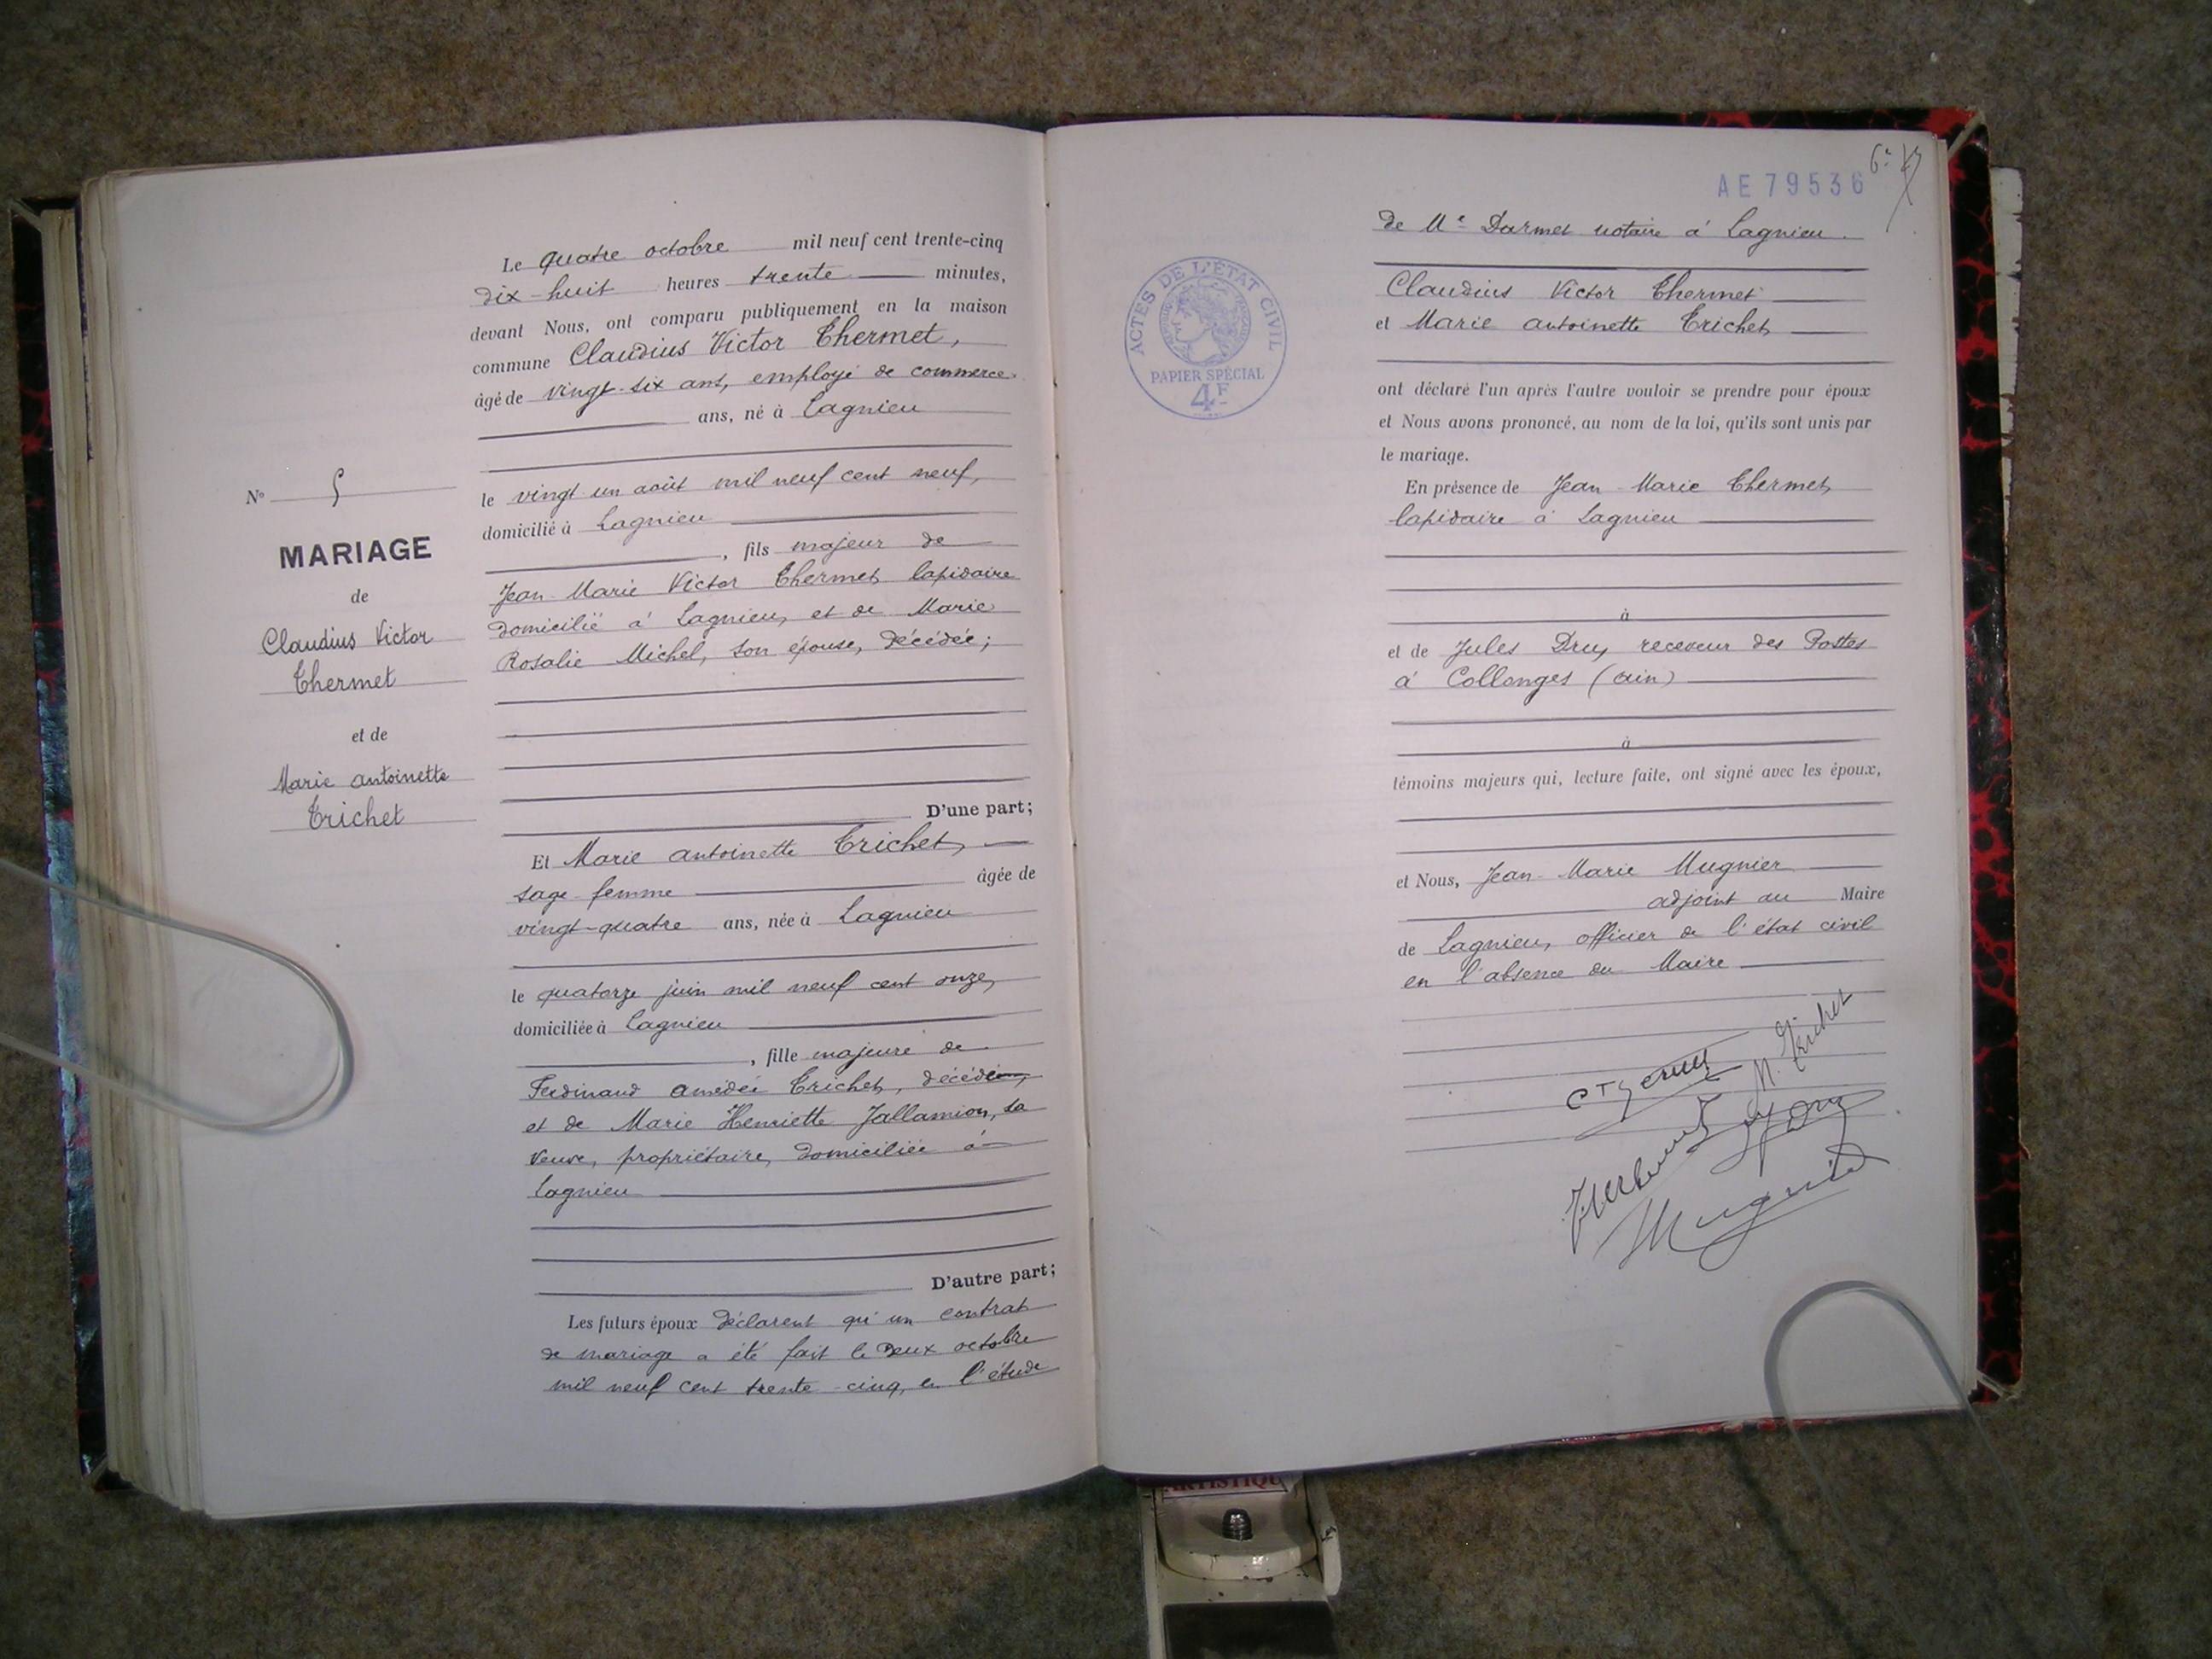 Le quatre octobre mil neuf cent trente-cinq
dix-huit heures trente minutes,
devant Nous, ont comparu publiquement en la maison
commune Claudius Victor Thermet,
âgé de vingt-six ans, employé de commerce
ans, né à Lagnieu
le vingt un août mil neuf cent neuf,
domicilié à Lagnieu
, fils majeur de
Jean-Marie Victor Thermet, lapidaire
domicilié à Lagnieu, et de Marie
Rosalie Michel, son épouse, décédée;
D'une part;
Et Marie antoinette Trichet,
sage-femme âgée de
vingt-quatre ans, née à Lagnieu
le quatorze juin mil neuf cent onze,
domiciliée à Lagnieu
, fille majeure de
Ferdinand Amédée Trichet, décédé,
et de Marie Henriette Jallamion, sa
veuve, propriétaire, domiciliée à
Lagnieu
D'autre part;
Les futurs époux déclarent qu'un contrat
de mariage a été fait le deux octobre
mil neuf cent trente-cinq, en l'étude
N°
MARIAGE
de
Claudius Victor
Thermet
et de
Marie antoinette
Trichet
AE79536
de Me Darmet notaire à Lagnieu.
ACTES DE L'ÉTAT CIVIL
PAPIER SPÉCIAL
4F
Claudius Victor Thermet
et Marie antoinette Trichet,
ont déclaré l'un après l'autre vouloir se prendre pour époux
et Nous avons prononcé, au nom de la loi, qu'ils sont unis par
le mariage.
En présence de Jean-Marie Thermet,
lapidaire à Lagnieu
à
et de Jules Druy receveur des Postes
à Collonges (ain)
à
témoins majeurs qui, lecture faite, ont signé avec les époux,
et Nous, Jean-Marie Mugnier
adjoint au Maire
de Lagnieu, officier de l'état civil
en l'absence du Maire
M. Trichet
Mugnier
ARTISTIQU